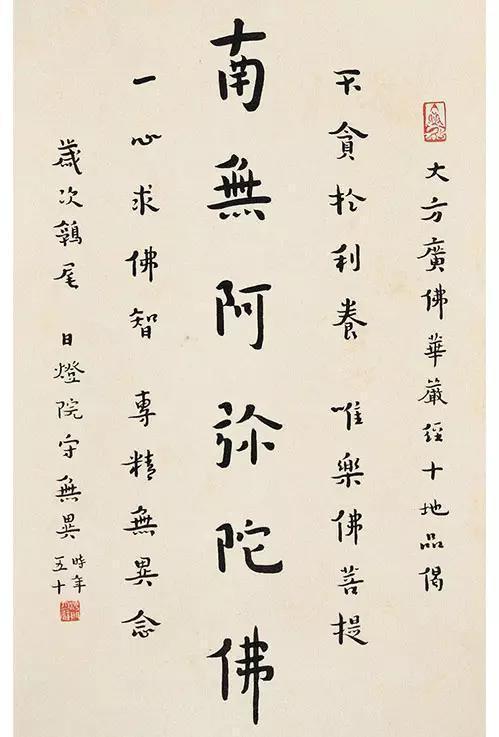 大方廣佛華嚴經十地品偈
不貪於利養 唯樂佛菩提
南無阿弥陀佛
一心求佛智 專精無異念
歲次鶉尾 日燈院守無異 時年
五十